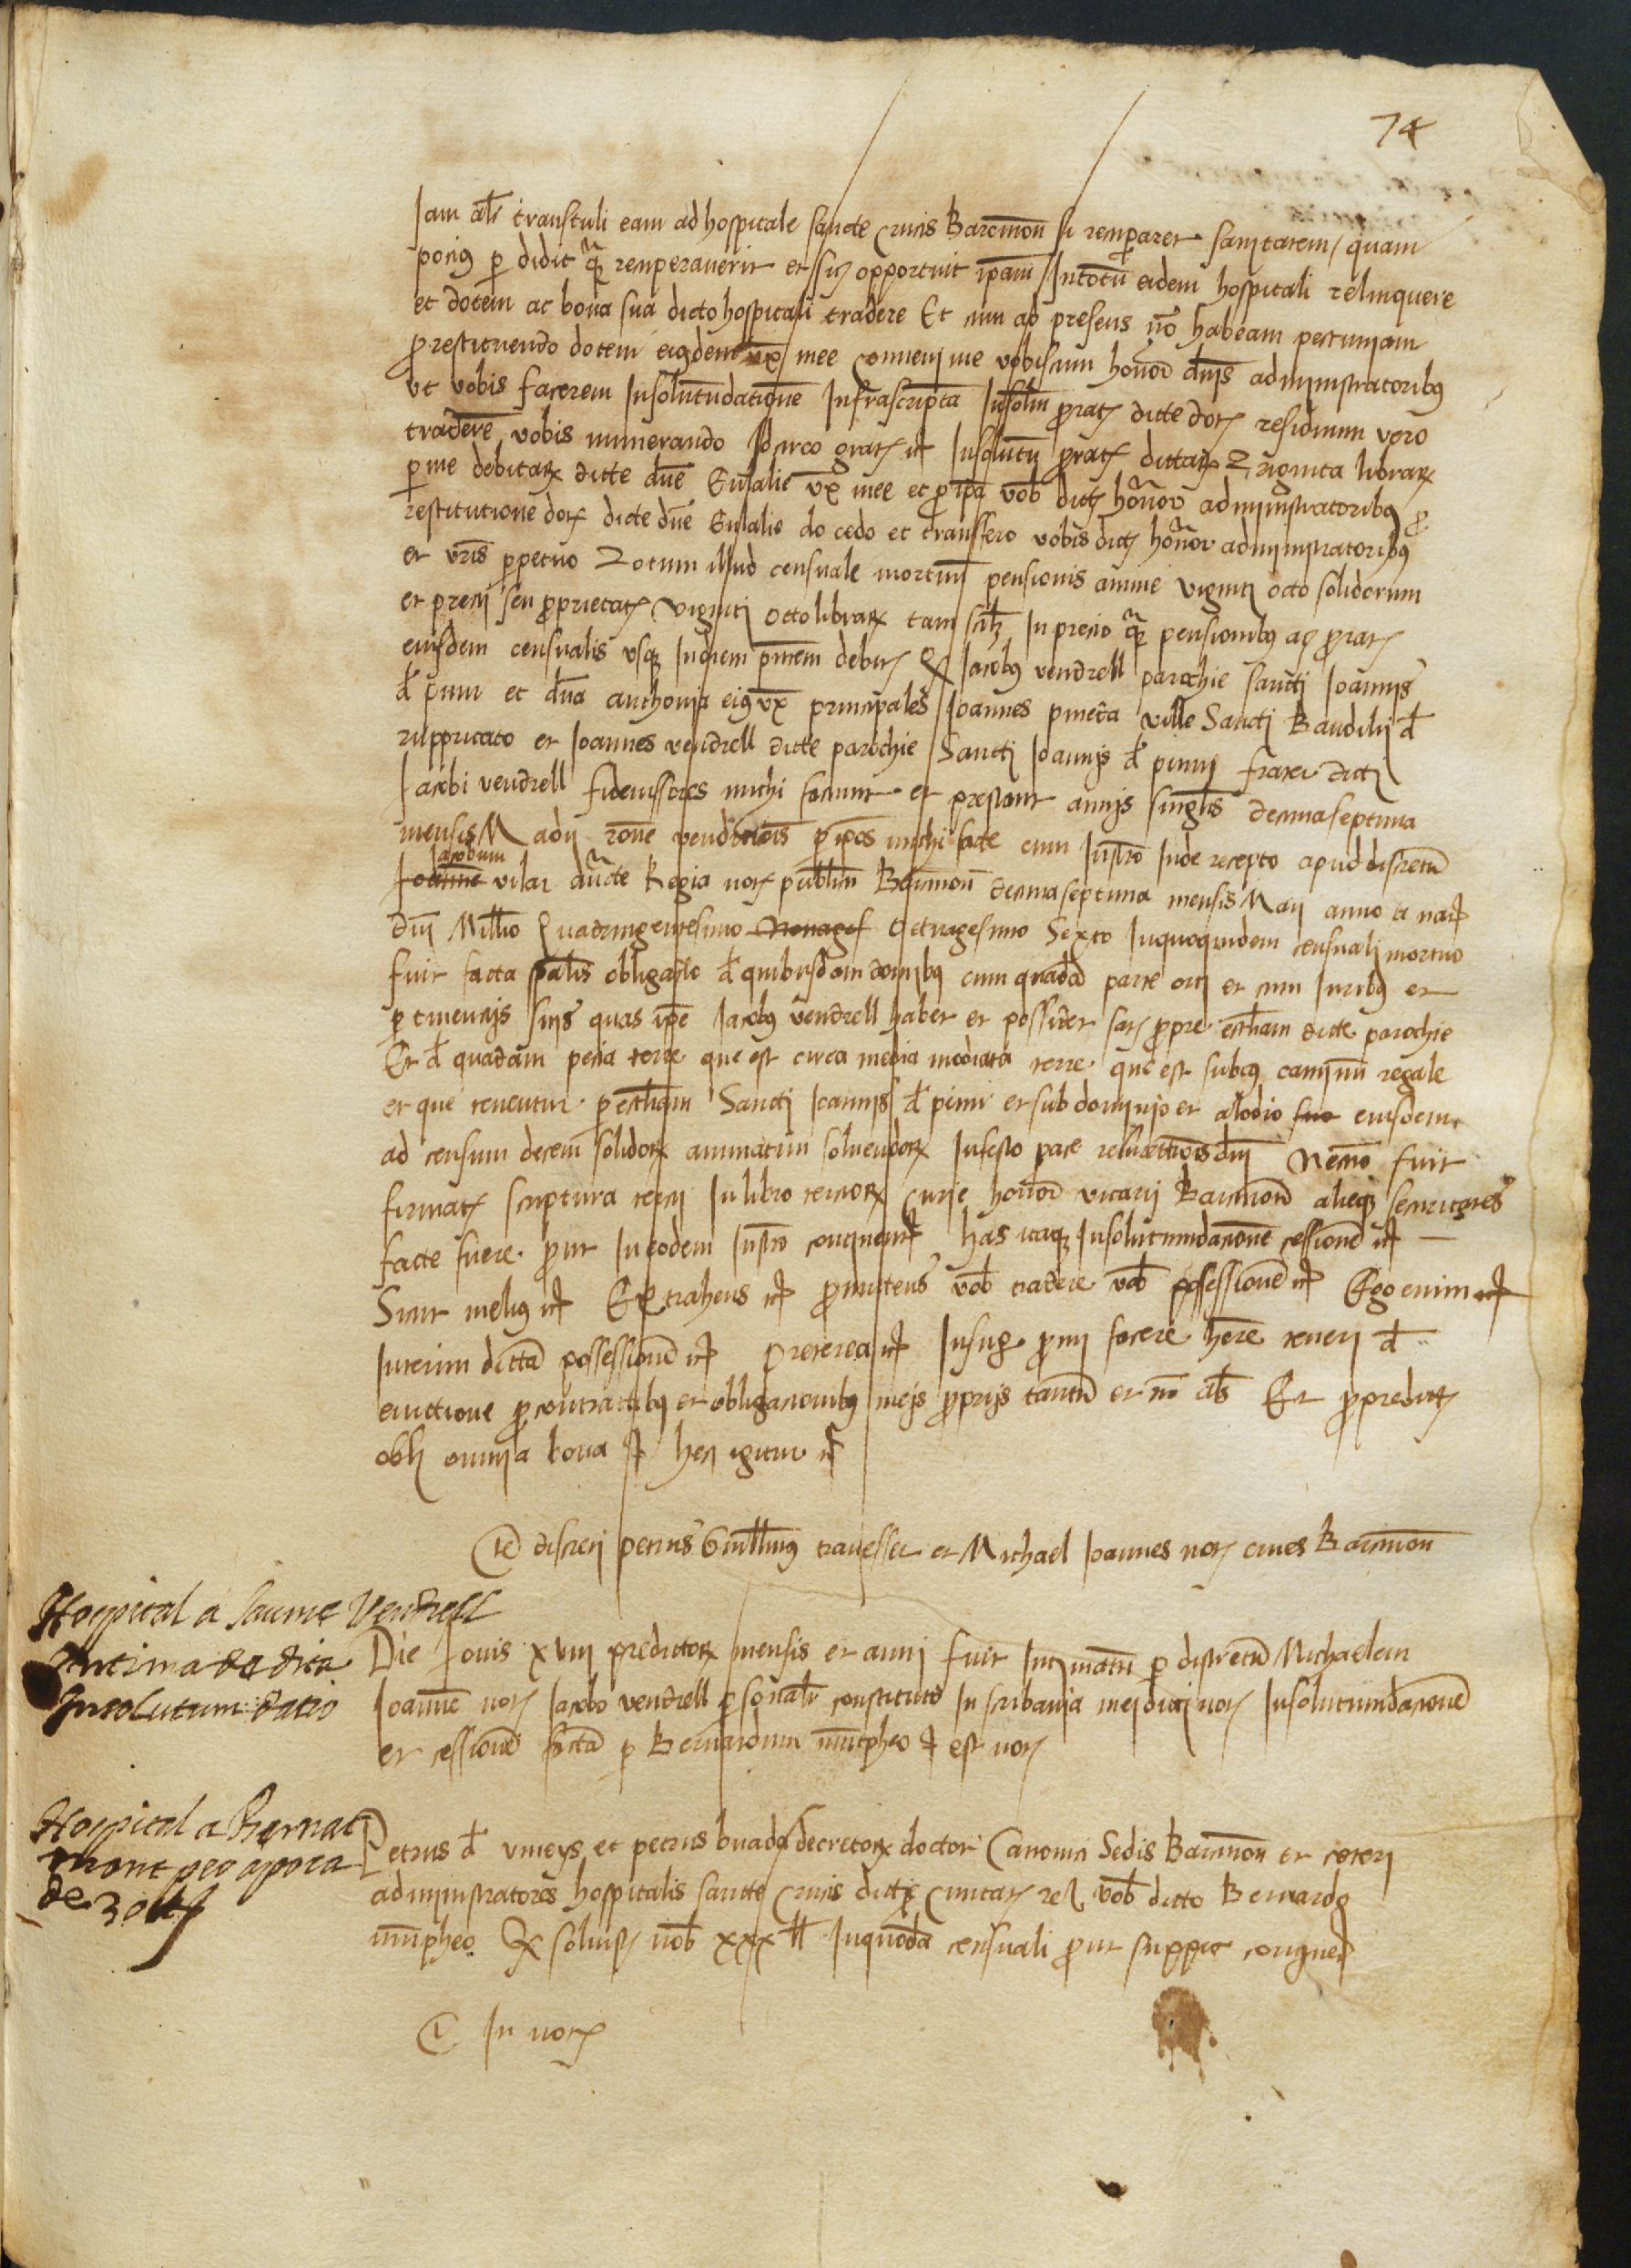 74
Iam al͞r transtuli eam ad hospitale sancte crucis Barc̄inon̄ si recuperaret sanitatem / quam
pocius perdidit q̃ recuperaverit et sic opportuit ipam̄ Intotū eidem hospitali relinquere
et dotem ac bona sua dicto hospitali tradere Et cum ad presens nō habeam pecuniam
pro restituendo dotem eiusdem ux̄ mee conveni me vobiscum honor̄ dn̄is administratoribus
ut vobis facerem Insolutundatione Infrascripta Insolutū prorat dicte dot residuum vero
tradere vobis numerando Idcirco grat̄ &c Insolutū prorat dictar Triginta librar
per me debitar dicte dn̄e Eulalie ux̄ mee et pro ipā vob̄ dict̄ honor̄ administratoribus pro
restitutione dot̄ dicte dn̄e Eulalie do cedo et transfero vobis dict̄ honor̄ administratoribus
et vr̄is perpetuo Totum illud censuale mortuū pensionis annue viginti octo solidorum
et precii seu proprietat̄ viginti octo librar tam scilz In precio q̃ pensionibus ac prorat̄
eiusdem censualis usq Indiem pn̄tem debit̄ Qd Iacobus vendrell parochie sancti Ioannis
d̄ pinu et dn̄a anthonia eius ux̄ principales Ioannes pineda ville Sancti Baudilii d̄
luppricato et Ioannes vendrell dicte parochie Sancti Ioannis d̄ pinu frater dicti
Iacobi vendrell fideiussores michi faciunt et prestant annis singl̄is decimaseptima
mensis Madii rōne venditiōis per ipos michi facte cum Instrō Inde recepto apud discretū
Iacobum
Ioannē vilar aucte Regia not̄ publicū Barc̄inon̄ decimaseptima mensis Maii anno a nat̄
dn̄i Mill̄io Quadringentesimo Nonages Octuagesimo Sexto Inquoquidem censuali mortuo
fuit facta sp̄alis obligacio d̄ quibusdam domibus cum quadā parte orti et cum Iuribus et
pertinenciis suis quas ipe Iacobus vendrell habet et possidet sat̄ prope ecclām dicte parochie
Et d̄ quadam pecia terre que est circa media modiata terre que est subtus caminū regale
et que tenentur per ecclām Sancti Ioannis d̄ pinu et sub dominio et alodio suo eiusdem
ad censum decem solidor annuatim solvendor Infesto pasce resurrectiōis dn̄i Necnō fuit
firmat̄ scriptura tercii In libro tercior Curie honor̄ vicarii Barc̄inon̄ alieq securitates
facte fuere prout In eodem Instrō continent̄ has itaq Insolutundacionē cessionē &c
Sicut melius &c Extrahens &c promittens vob̄ tradere vob̄ possessionē &c Ego enim &c
Interim dictā possessionē &c preterea &c Insup promi facere hēre teneri d̄
evictione pro contractibus et obligacionibus meis propriis tantū et nō al̄s Et pro predict̄
obli omnia bona &c hec igitur &c
Te discreti petrus Guill̄mus travesser et Michael Ioannes not̄ cives Barc̄inon̄
Hospital a Jaume Vendrell
Intima de dita
Insolutum datio
Die Iovis xviii predictor mensis et anni fuit Intimatū per discretū Michaelem
Ioannē not̄ Iacobo vendrell personalr̄ constituto In scribania mei dicti not̄ Insolutundacionē
et cessionē factā per Bernardum &c est not̄
Hospital a Bernat
mont peo apoca
de 30 ll
Petrus d̄ vineys et petrus buada decretor doctor Canonici Sedis Barc̄inon̄ et ceteri
administratores hospitalis sancte Crucis dicte Civitat̄ &c vob̄ dicto Bernardo
Qr solvist̄ nob̄ xxx ll Inquodā censuali prout supper continet̄
T In not̄